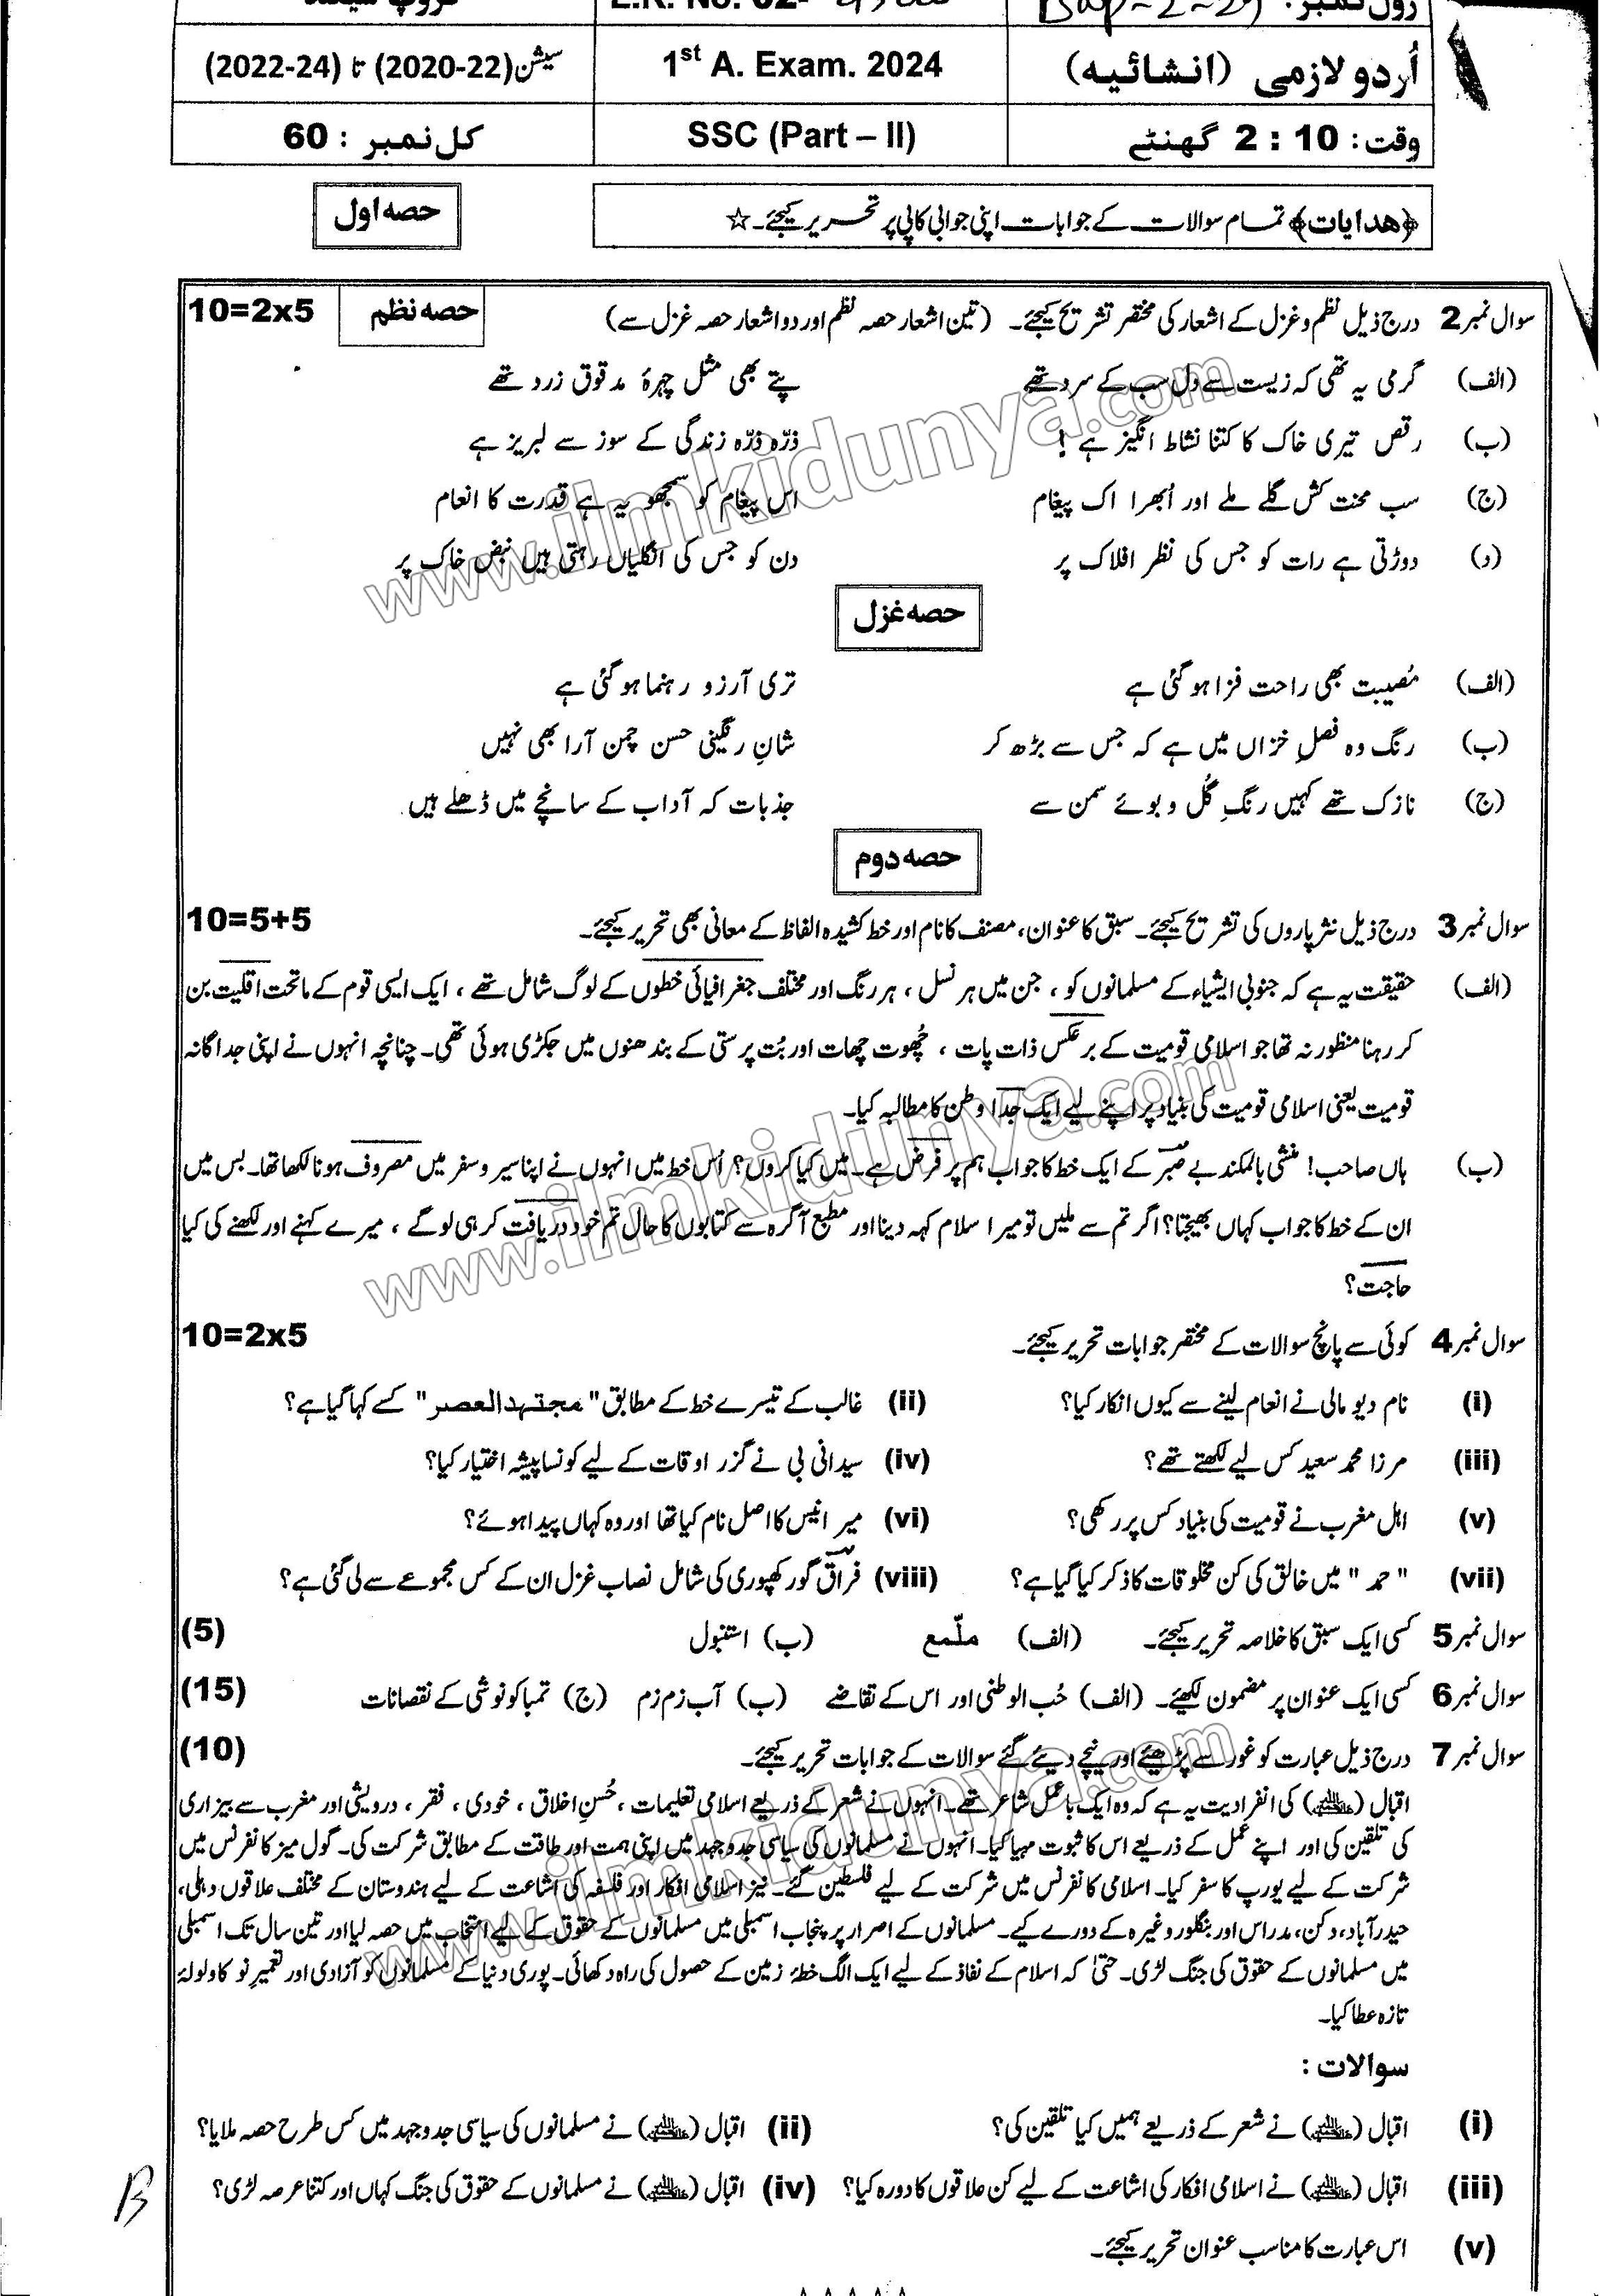 اُردو لازمی (انشائیہ) 1st A. Exam. 2024 سیشن (2020-22) تا (2022-24)
وقت: 2 : 10 گھنٹے SSC (Part – II) کل نمبر : 60
﴿ھدایات﴾ تمام سوالات کے جوابات اپنی جوابی کاپی پر تحریر کیجئے۔ ☆ حصہ اول
سوال نمبر 2 درج ذیل نظم و غزل کے اشعار کی مختصر تشریح کیجئے۔ (تین اشعار حصہ نظم اور دو اشعار حصہ غزل سے) حصہ نظم 10=2x5
(الف) گرمی یہ تھی کہ زیست سے دل سب کے سرد تھے پتے بھی مثل چہرۂ مدقوق زرد تھے
(ب) رقص تیری خاک کا کتنا نشاط انگیز ہے ! ذرّہ ذرّہ زندگی کے سوز سے لبریز ہے
(ج) سب محنت کش گلے ملے اور اُبھرا اک پیغام اس پیغام کو سمجھو یہ ہے قدرت کا انعام
(د) دوڑتی ہے رات کو جس کی نظر افلاک پر دن کو جس کی انگلیاں رہتی ہیں نبض خاک پر
حصہ غزل
(الف) مُصیبت بھی راحت فزا ہو گئی ہے تری آرزو رہنما ہو گئی ہے
(ب) رنگ وہ فصلِ خزاں میں ہے کہ جس سے بڑھ کر شانِ رنگینی حسن چمن آرا بھی نہیں
(ج) نازک تھے کہیں رنگِ گُل و بوئے سمن سے جذبات کہ آداب کے سانچے میں ڈھلے ہیں
حصہ دوم
سوال نمبر 3 درج ذیل نثر پاروں کی تشریح کیجئے۔ سبق کا عنوان، مصنف کا نام اور خط کشیدہ الفاظ کے معانی بھی تحریر کیجئے۔ 10=5+5
(الف) حقیقت یہ ہے کہ جنوبی ایشیاء کے مسلمانوں کو ، جن میں ہر نسل ، ہر رنگ اور مختلف جغرافیائی خطوں کے لوگ شامل تھے ، ایک ایسی قوم کے ماتحت اقلیت بن
کر رہنا منظور نہ تھا جو اسلامی قومیت کے برعکس ذات پات ، چُھوت چھات اور بُت پرستی کے بندھنوں میں جکڑی ہوئی تھی۔ چنانچہ انہوں نے اپنی جداگانہ
قومیت یعنی اسلامی قومیت کی بنیاد پر اپنے لیے ایک جدا وطن کا مطالبہ کیا۔
(ب) ہاں صاحب! منشی بالمکند بے صبر کے ایک خط کا جواب ہم پر فرض ہے۔ میں کیا کروں؟ اُس خط میں انہوں نے اپنا سیر و سفر میں مصروف ہونا لکھا تھا۔ بس میں
ان کے خط کا جواب کہاں بھیجتا؟ اگر تم سے ملیں تو میرا سلام کہہ دینا اور مطبع آگرہ سے کتابوں کا حال تم خود دریافت کر ہی لو گے ، میرے کہنے اور لکھنے کی کیا
حاجت؟
سوال نمبر 4 کوئی سے پانچ سوالات کے مختصر جوابات تحریر کیجئے۔ 10=2x5
(i) نام دیو مالی نے انعام لینے سے کیوں انکار کیا؟ (ii) غالب کے تیسرے خط کے مطابق "مجتہد العصر" کسے کہا گیا ہے؟
(iii) مرزا محمد سعید کس لیے لکھتے تھے؟ (iv) سیدانی بی نے گزر اوقات کے لیے کونسا پیشہ اختیار کیا؟
(v) اہل مغرب نے قومیت کی بنیاد کس پر رکھی؟ (vi) میر انیس کا اصل نام کیا تھا اور وہ کہاں پیدا ہوئے؟
(vii) "حمد" میں خالق کی کن مخلوقات کا ذکر کیا گیا ہے؟ (viii) فراق گورکھپوری کی شامل نصاب غزل ان کے کس مجموعے سے لی گئی ہے؟
سوال نمبر 5 کسی ایک سبق کا خلاصہ تحریر کیجئے۔ (الف) ملّمع (ب) استنبول (5)
سوال نمبر 6 کسی ایک عنوان پر مضمون لکھئے۔ (الف) حُب الوطنی اور اس کے تقاضے (ب) آب زم زم (ج) تمباکو نوشی کے نقصانات (15)
سوال نمبر 7 درج ذیل عبارت کو غور سے پڑھیئے اور نیچے دیئے گئے سوالات کے جوابات تحریر کیجئے۔ (10)
اقبال (رحمۃ اللہ علیہ) کی انفرادیت یہ ہے کہ وہ ایک باعمل شاعر تھے۔ انہوں نے شعر کے ذریعے اسلامی تعلیمات ، حُسنِ اخلاق ، خودی ، فقر ، درویشی اور مغرب سے بیزاری
کی تلقین کی اور اپنے عمل کے ذریعے اس کا ثبوت مہیا کیا۔ انہوں نے مسلمانوں کی سیاسی جدوجہد میں اپنی ہمت اور طاقت کے مطابق شرکت کی۔ گول میز کانفرنس میں
شرکت کے لیے یورپ کا سفر کیا۔ اسلامی کانفرنس میں شرکت کے لیے فلسطین گئے۔ نیز اسلامی افکار اور فلسفہ کی اشاعت کے لیے ہندوستان کے مختلف علاقوں دہلی،
حیدرآباد، دکن، مدراس اور بنگلور وغیرہ کے دورے کیے۔ مسلمانوں کے اصرار پر پنجاب اسمبلی میں مسلمانوں کے حقوق کے لیے انتخاب میں حصہ لیا اور تین سال تک اسمبلی
میں مسلمانوں کے حقوق کی جنگ لڑی۔ حتیٰ کہ اسلام کے نفاذ کے لیے ایک الگ خطۂ زمین کے حصول کی راہ دکھائی۔ پوری دنیا کے مسلمانوں کو آزادی اور تعمیرِ نو کا ولولۂ
تازہ عطا کیا۔
سوالات :
(i) اقبال (رحمۃ اللہ علیہ) نے شعر کے ذریعے ہمیں کیا تلقین کی؟ (ii) اقبال (رحمۃ اللہ علیہ) نے مسلمانوں کی سیاسی جدوجہد میں کس طرح حصہ ملایا؟
(iii) اقبال (رحمۃ اللہ علیہ) نے اسلامی افکار کی اشاعت کے لیے کن علاقوں کا دورہ کیا؟ (iv) اقبال (رحمۃ اللہ علیہ) نے مسلمانوں کے حقوق کی جنگ کہاں اور کتنا عرصہ لڑی؟
(v) اس عبارت کا مناسب عنوان تحریر کیجئے۔
www.ilmkidunya.com
www.ilmkidunya.com
www.ilmkidunya.com